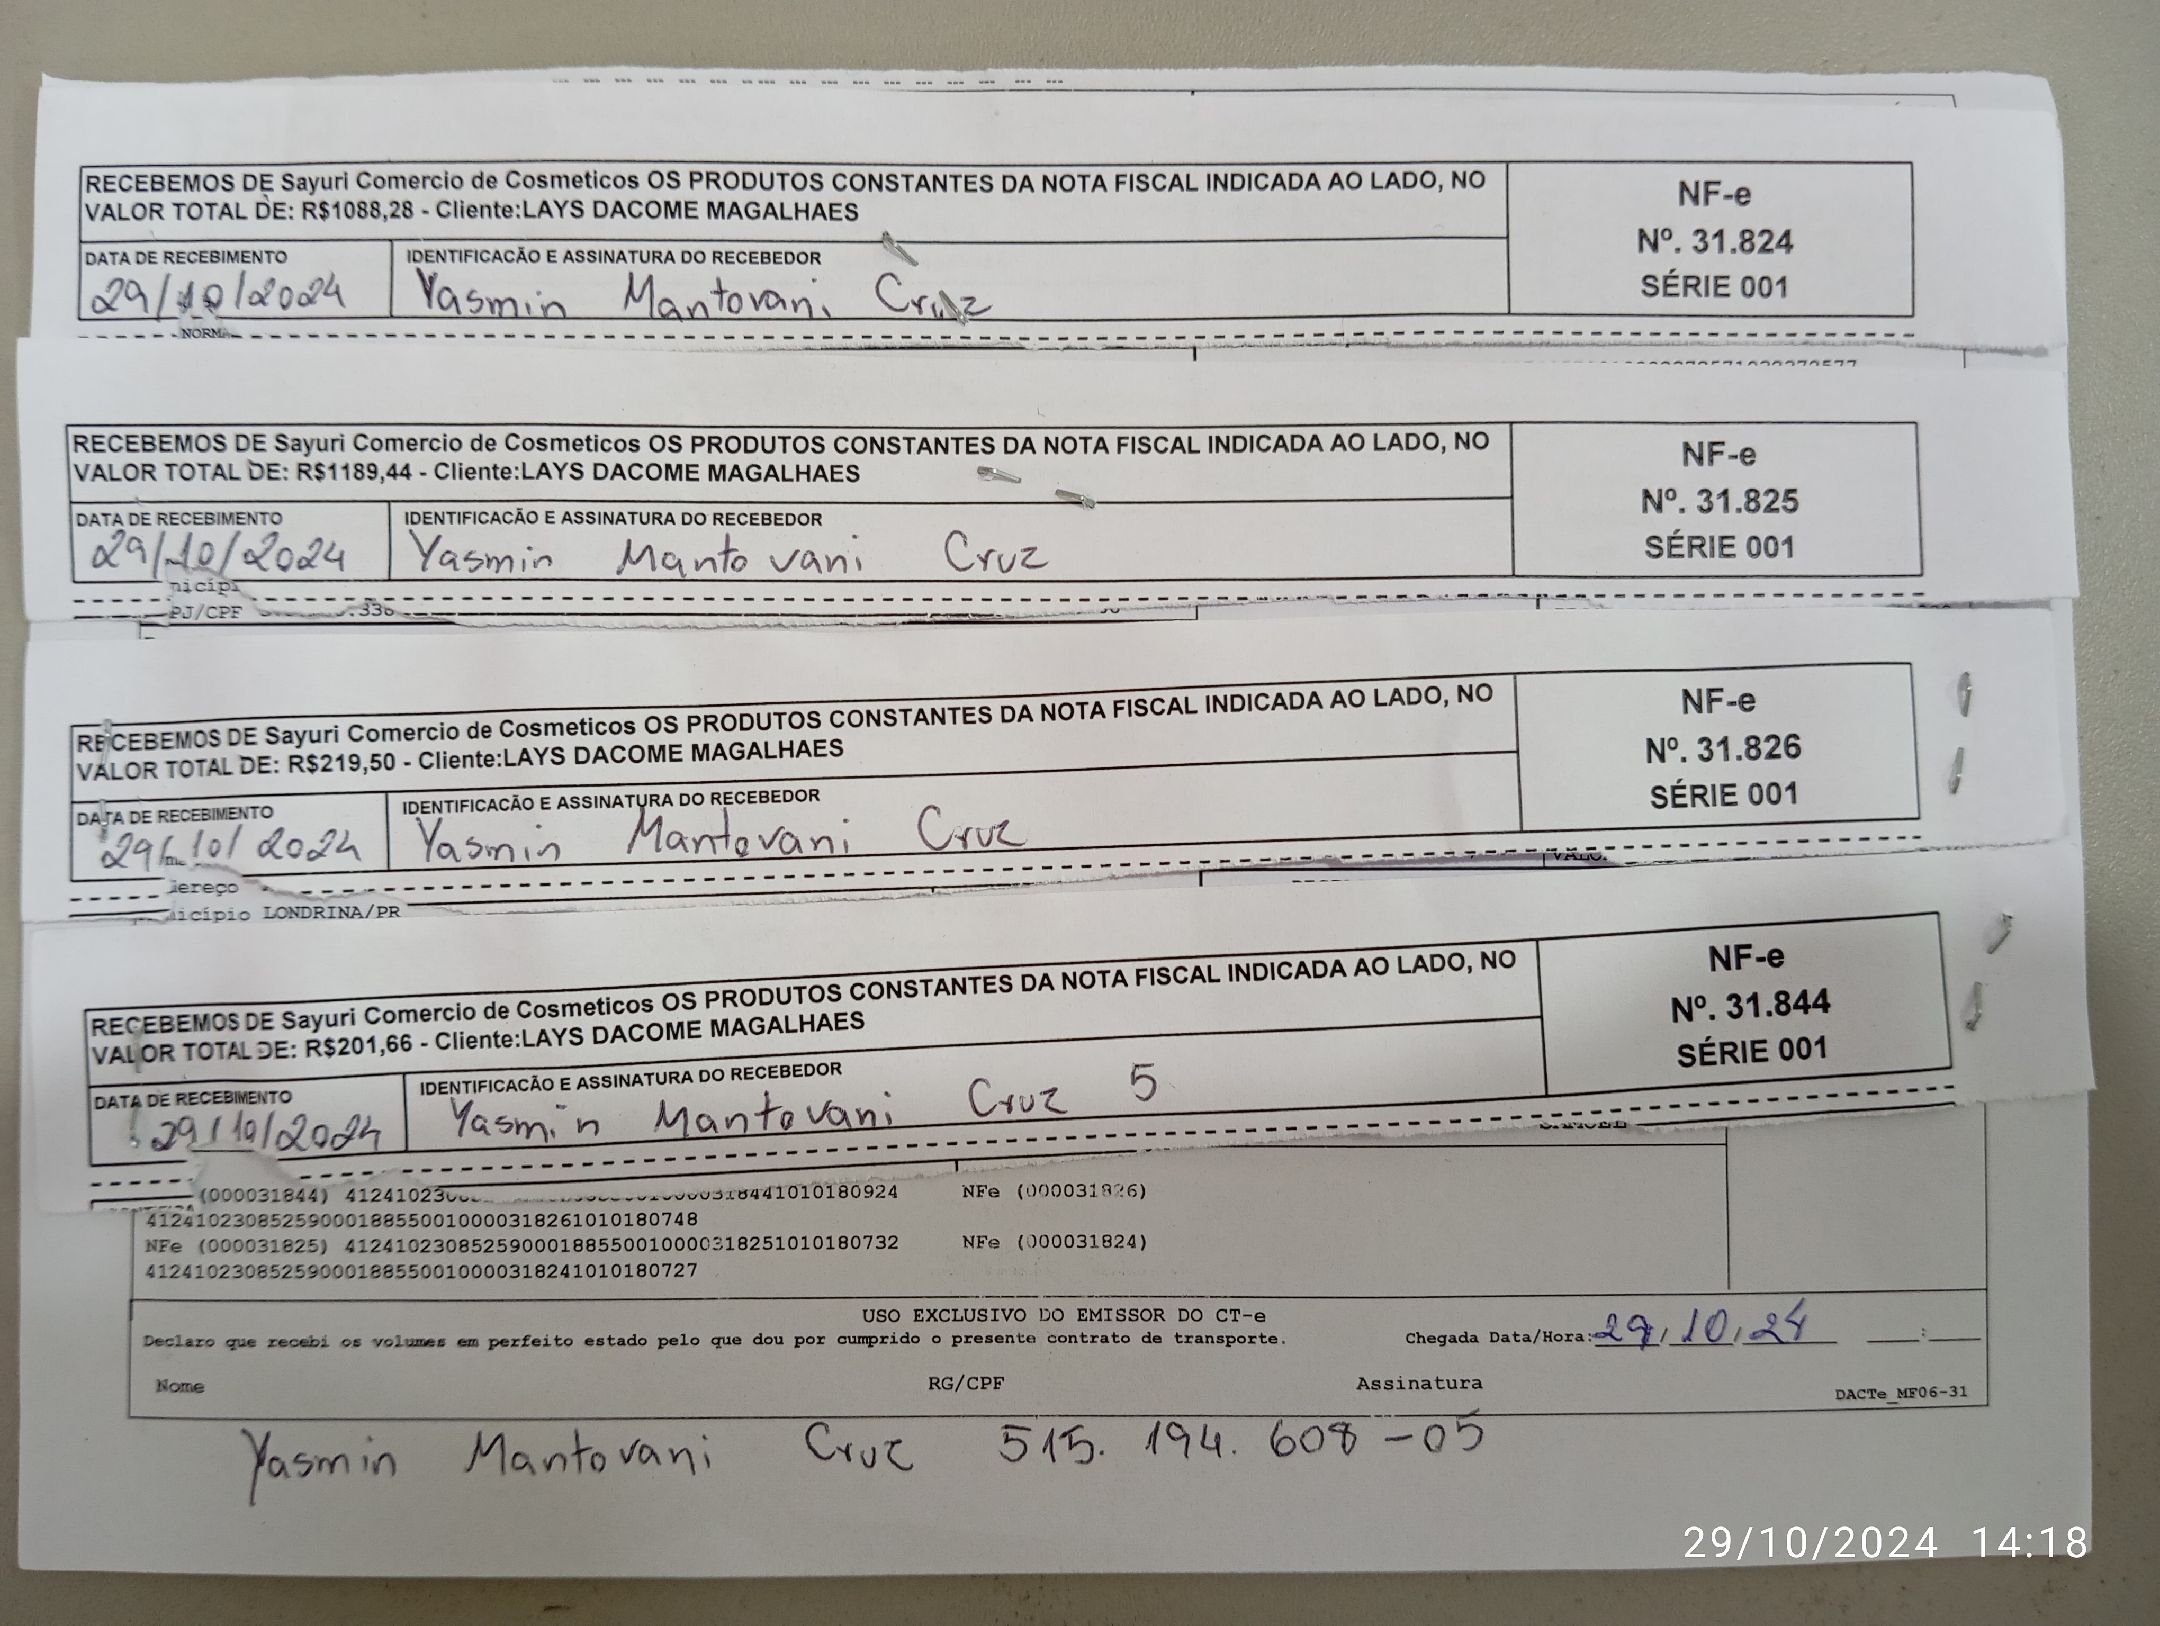 RECEBEMOS DE Sayuri Comercio de Cosmeticos OS PRODUTOS CONSTANTES DA NOTA FISCAL INDICADA AO LADO, NO
VALOR TOTAL DE: R$1088,28 - Cliente:LAYS DACOME MAGALHAES
NF-e
Nº. 31.824
SÉRIE 001
DATA DE RECEBIMENTO
29/10/2024
IDENTIFICACÃO E ASSINATURA DO RECEBEDOR
Yasmin Mantovani Cruz
RECEBEMOS DE Sayuri Comercio de Cosmeticos OS PRODUTOS CONSTANTES DA NOTA FISCAL INDICADA AO LADO, NO
VALOR TOTAL DE: R$1189,44 - Cliente:LAYS DACOME MAGALHAES
NF-e
Nº. 31.825
SÉRIE 001
DATA DE RECEBIMENTO
29/10/2024
IDENTIFICACÃO E ASSINATURA DO RECEBEDOR
Yasmin Mantovani Cruz
PJ/CPF
RECEBEMOS DE Sayuri Comercio de Cosmeticos OS PRODUTOS CONSTANTES DA NOTA FISCAL INDICADA AO LADO, NO
VALOR TOTAL DE: R$219,50 - Cliente:LAYS DACOME MAGALHAES
NF-e
Nº. 31.826
SÉRIE 001
DATA DE RECEBIMENTO
29/10/2024
IDENTIFICACÃO E ASSINATURA DO RECEBEDOR
Yasmin Mantovani Cruz
ereço
icípio LONDRINA/PR
RECEBEMOS DE Sayuri Comercio de Cosmeticos OS PRODUTOS CONSTANTES DA NOTA FISCAL INDICADA AO LADO, NO
VALOR TOTAL DE: R$201,66 - Cliente:LAYS DACOME MAGALHAES
NF-e
Nº. 31.844
SÉRIE 001
DATA DE RECEBIMENTO
29/10/2024
IDENTIFICACÃO E ASSINATURA DO RECEBEDOR
Yasmin Mantovani Cruz 5
(000031844) NFe (000031826)
41241023085259000188550010000318261010180748
NFe (000031825) 41241023085259000188550010000318251010180732 NFe (000031824)
41241023085259000188550010000318241010180727
USO EXCLUSIVO DO EMISSOR DO CT-e
Declaro que recebi os volumes em perfeito estado pelo que dou por cumprido o presente contrato de transporte. Chegada Data/Hora: 29/10/24 :
Nome RG/CPF Assinatura DACTe_MF06-31
Yasmin Mantovani Cruz 515.194.608-05
29/10/2024 14:18